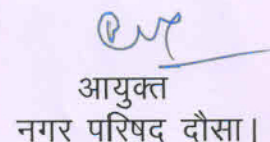 आयुक्त
नगर परिषद दौसा।